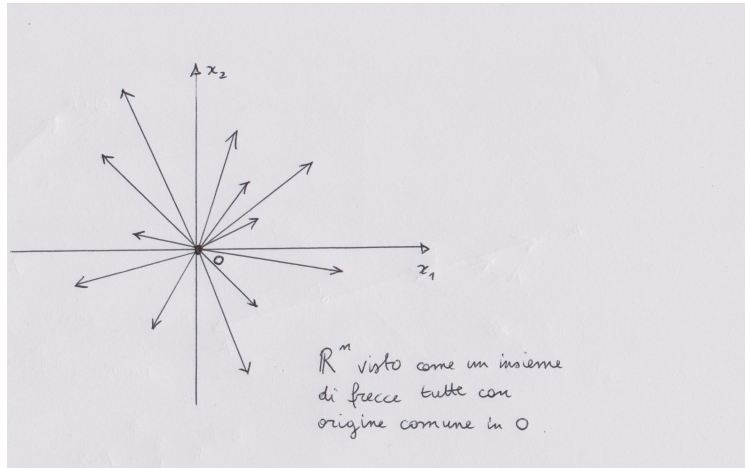 x₂
O
x₁
ℝⁿ visto come un insieme
di frecce tutte con
origine comune in O.